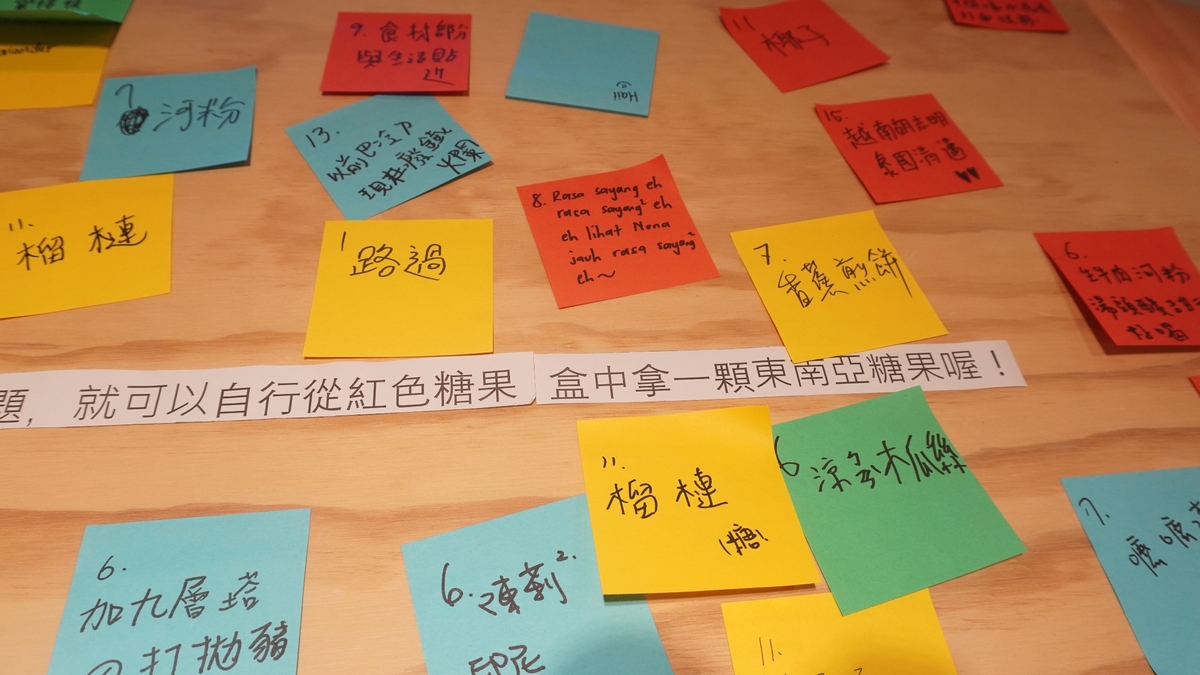 9. 食材部分
與生活貼
近
Haii
11
椰子
7
河粉
13.
以前巴冷刀
現在發鐵
火關
15.
越南胡志明
泰國清邁
11.
榴槤
1
路過
8. Rasa sayang eh
rasa sayang² eh
eh lihat Nona
jauh rasa sayang²
eh~
7.
香蕉煎餅
6.
牛肉河粉
湯頭酸
題,就可以自行從紅色糖果盒中拿一顆東南亞糖果喔!
11.
榴槤
(糖)
6
涼拌木瓜絲
6.
加九層塔
打拋豬
6.
印尼
7.
11.